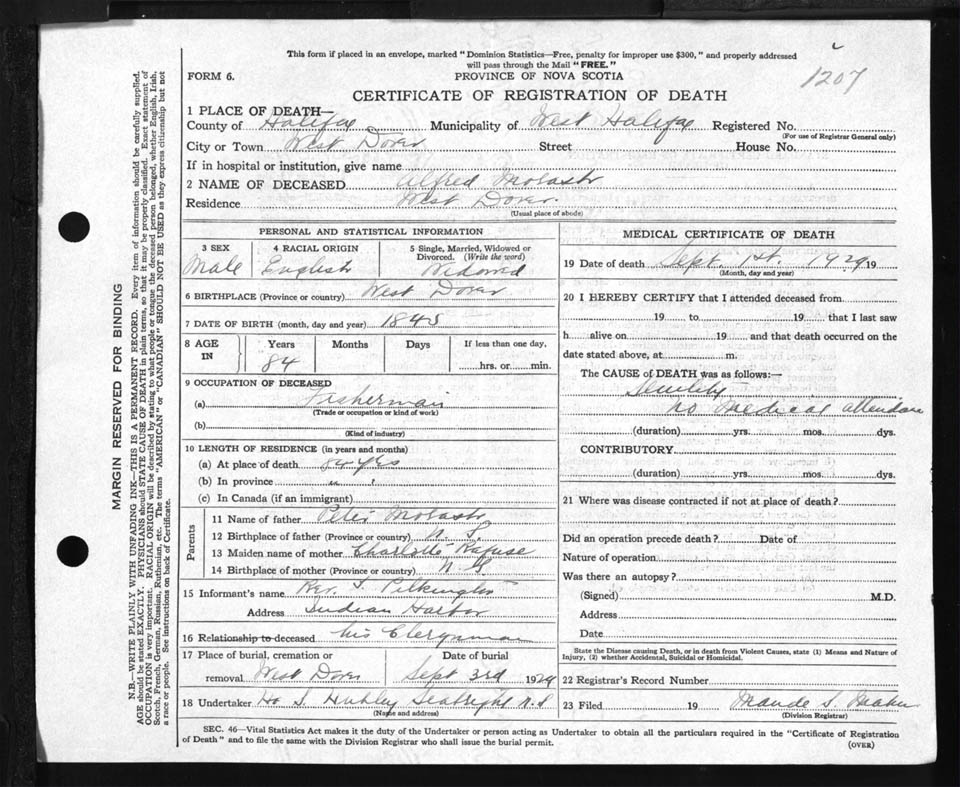 This form if placed in an envelope, marked "Dominion Statistics—Free, penalty for improper use $300," and properly addressed
will pass through the Mail "FREE."
FORM 6.
PROVINCE OF NOVA SCOTIA
1207
CERTIFICATE OF REGISTRATION OF DEATH
1 PLACE OF DEATH—
County of Halifax Municipality of West Halifax Registered No.
(For use of Registrar General only)
City or Town West Dover Street House No.
If in hospital or institution, give name
2 NAME OF DECEASED Alfred
Residence West Dover.
(Usual place of abode)
PERSONAL AND STATISTICAL INFORMATION
3 SEX 4 RACIAL ORIGIN 5 Single, Married, Widowed or
Divorced. (Write the word)
Male English Widowed
6 BIRTHPLACE (Province or country) West Dover
7 DATE OF BIRTH (month, day and year) 1845
8 AGE IN Years Months Days If less than one day,
84 hrs. or min.
9 OCCUPATION OF DECEASED
(a) Fisherman
(Trade or occupation or kind of work)
(b)
(Kind of industry)
10 LENGTH OF RESIDENCE (in years and months)
(a) At place of death 84 yrs
(b) In province " "
(c) In Canada (if an immigrant)
Parents
11 Name of father Peter
12 Birthplace of father (Province or country) N. S.
13 Maiden name of mother Charlotte Rafuse
14 Birthplace of mother (Province or country) N. S
15 Informant's name Rev. Pilkington
Address Indian Harbor
16 Relationship to deceased his Clergyman
17 Place of burial, cremation or Date of burial
removal West Dover Sept 3rd 1929
18 Undertaker Hubley Seabright N.S
(Name and address)
MEDICAL CERTIFICATE OF DEATH
19 Date of death Sept. 1st. 1929 19
(Month, day and year)
20 I HEREBY CERTIFY that I attended deceased from
19 to 19 that I last saw
h alive on 19 and that death occurred on the
date stated above, at m.
The CAUSE of DEATH was as follows:—
Senility
no medical attendance
(duration) yrs. mos. dys.
CONTRIBUTORY
(duration) yrs. mos. dys.
21 Where was disease contracted if not at place of death?
Did an operation precede death? Date of
Nature of operation
Was there an autopsy?
(Signed) M.D.
Address
Date
State the Disease causing Death, or in death from Violent Causes, state (1) Means and Nature of
Injury, (2) whether Accidental, Suicidal or Homicidal.
22 Registrar's Record Number
23 Filed 19 Maude S.
(Division Registrar)
SEC. 46—Vital Statistics Act makes it the duty of the Undertaker or person acting as Undertaker to obtain all the particulars required in the "Certificate of Registration
of Death" and to file the same with the Division Registrar who shall issue the burial permit.
(OVER)
MARGIN RESERVED FOR BINDING
N.B.—WRITE PLAINLY WITH UNFADING INK—THIS IS A PERMANENT RECORD. Every item of information should be carefully supplied.
AGE should be stated EXACTLY. PHYSICIANS should STATE CAUSE OF DEATH in plain terms, so that it may be properly classified. Exact statement of
OCCUPATION is very important. RACIAL ORIGIN will be described by stating to what people or tongue the deceased person belonged, whether English, Irish,
Scotch, French, German, Russian, Ruthenian, etc. The terms "AMERICAN" or "CANADIAN" SHOULD NOT BE USED as they express citizenship but not
a race or people. See instructions on back of Certificate.